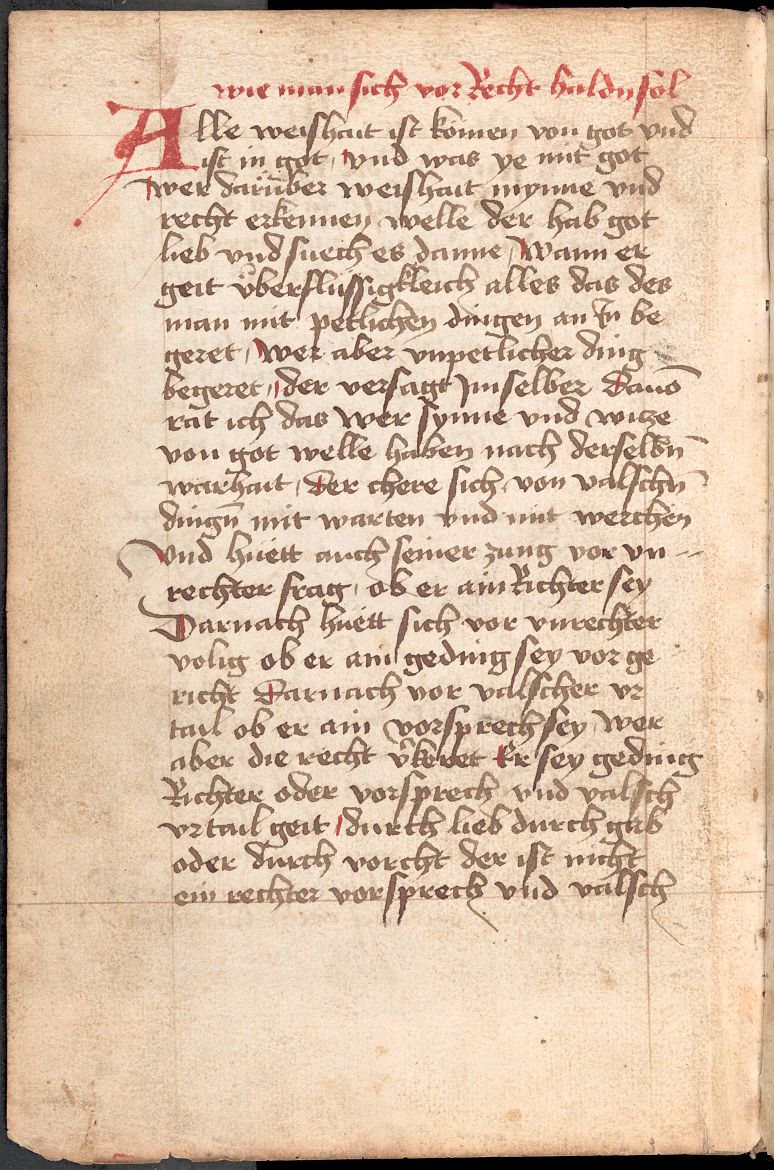 wie man sich vor Recht haldn sol
Alle weishait ist komen von got vnd
ist in got / vnd was ye mit got
wer darüber weishait mynne vnd
recht erkennen welle der hab got
lieb vnd suech es danne / Wann er
geit vberflüssigkleich alles das des
man mit petlichen dingen an In be
geret / Wer aber vnpetlicher ding
begeret / der versagt Im selber Dauō
rat ich das Wer synne vnd witze
von got welle haben nach derselbn̄
warhait / Der chere sich von valschn̄
dingn̄ mit warten vnd mit werchen
Vnd huett auch seiner zung vor vn --
rechter frag / ob er ain Richter sey
Darnach huett sich vor vnrechter
volig ob er ain geding sey vor ge
richt Darnach vor valscher vr
tail ob er ain vorsprech sey / Wer
aber die recht v̾keret Er sey geding
Richter oder vorsprech vnd valsch
vrtail geit / durch lieb durch gab
oder durch vorcht der ist nicht
ein rechter vorsprech vnd valsch